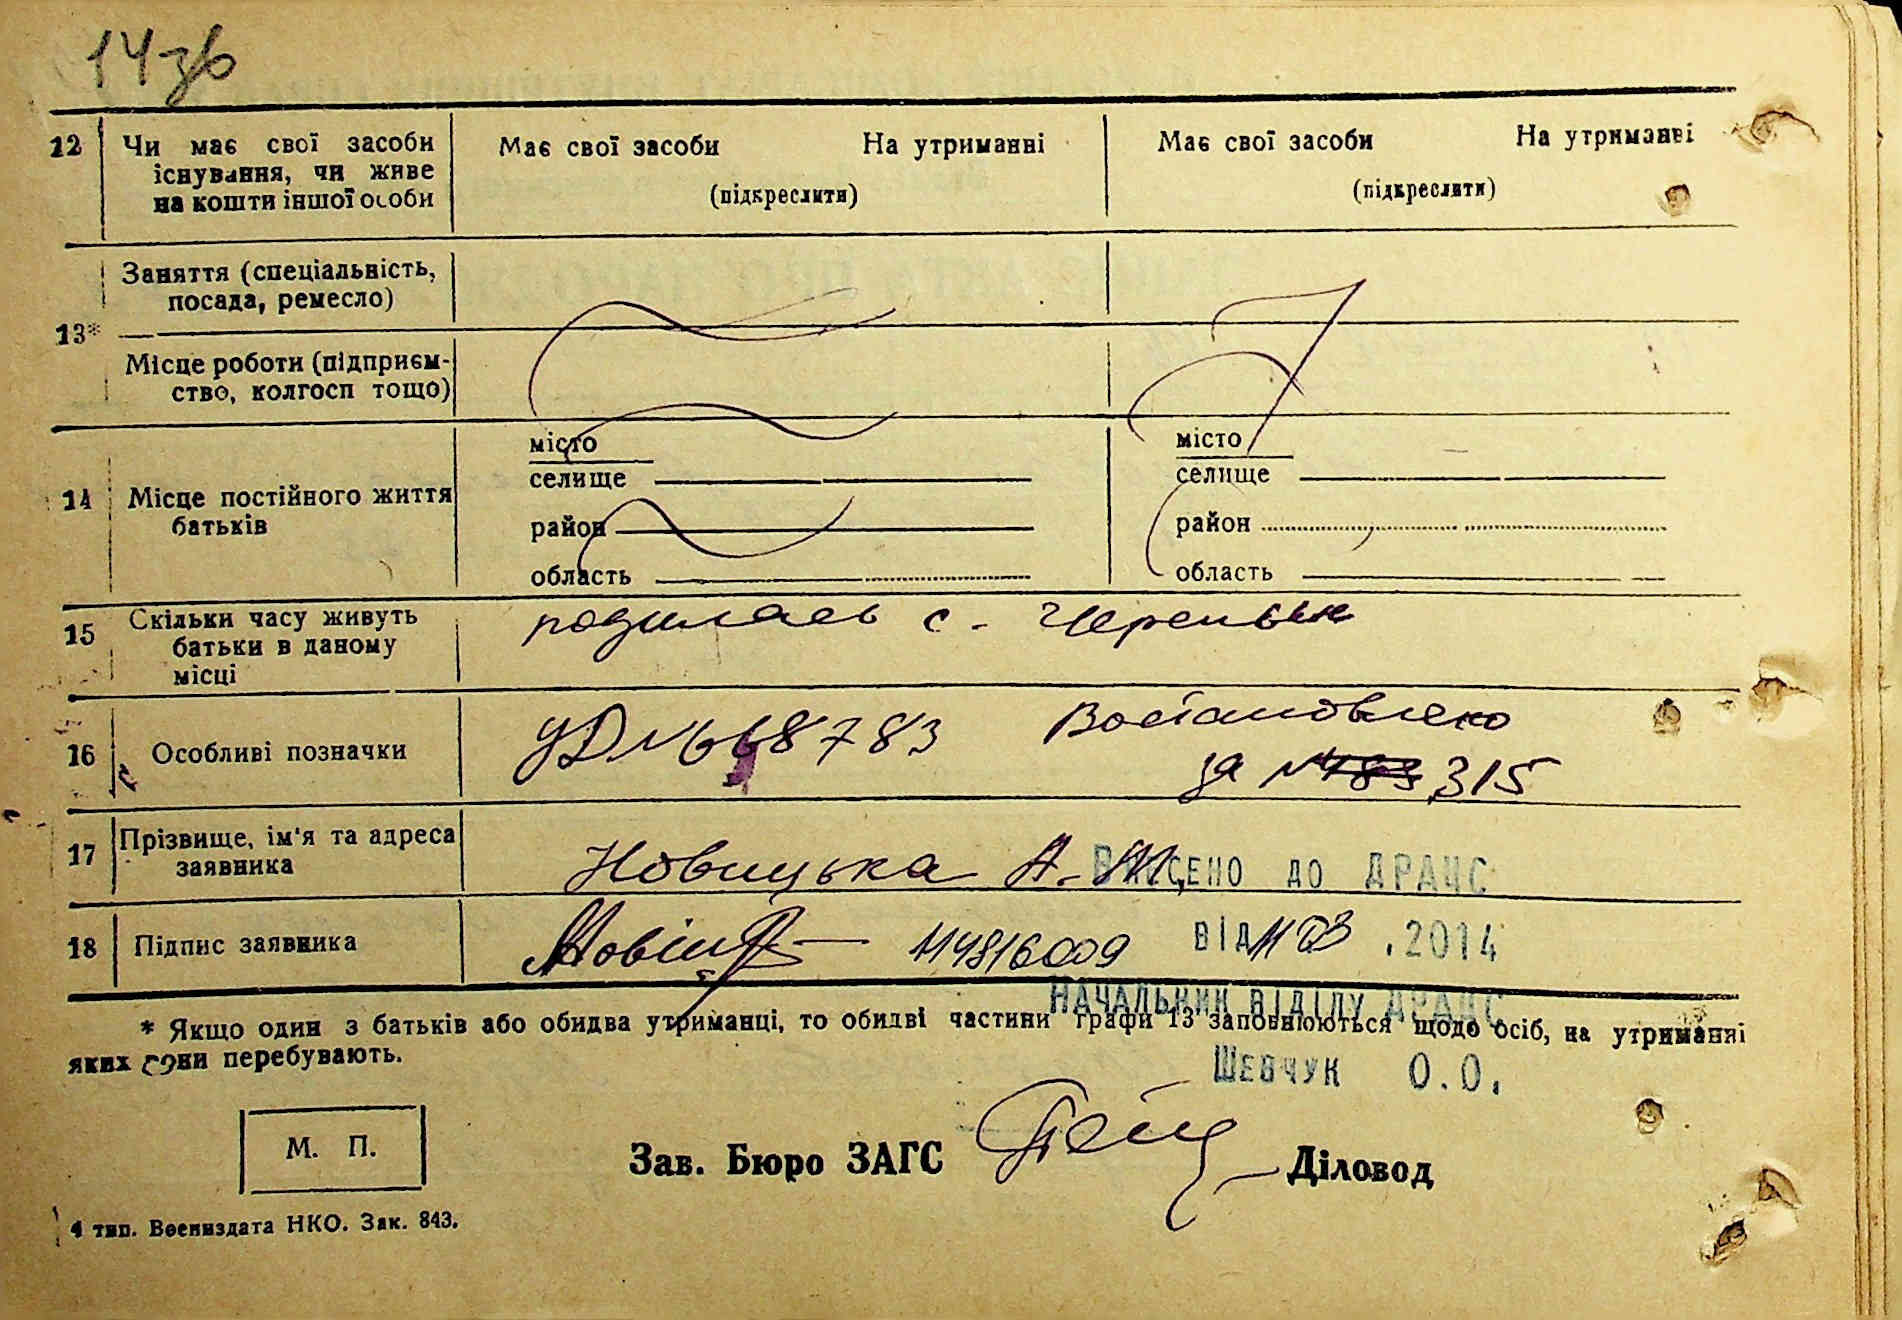 14зв
12 Чи має свої засоби існування, чи живе на кошти іншої особи
Має свої засоби На утриманні
(підкреслити)
Має свої засоби На утриманні
(підкреслити)
13* Заняття (спеціальність, посада, ремесло)
Місце роботи (підприємство, колгосп тощо)
14 Місце постійного життя батьків
місто
селище
район
область
місто
селище
район
область
15 Скільки часу живуть батьки в даному місці
с.
16 Особливі позначки
УД № 668783
за № 783 315
17 Прізвище, ім'я та адреса заявника
Новицька А. М.
ВНЕСЕНО ДО ДРАЦС
18 Підпис заявника
114816009
ВІД 11 03 .2014
НАЧАЛЬНИК ВІДІЛУ ДРАЦС
* Якщо один з батьків або обидва утриманці, то обидві частини графи 13 заповнюються щодо осіб, на утриманні
яких вони перебувають.
ШЕВЧУК О.О.
М. П.
Зав. Бюро ЗАГС Діловод
4 тип. Воениздата НКО. Зак. 843.